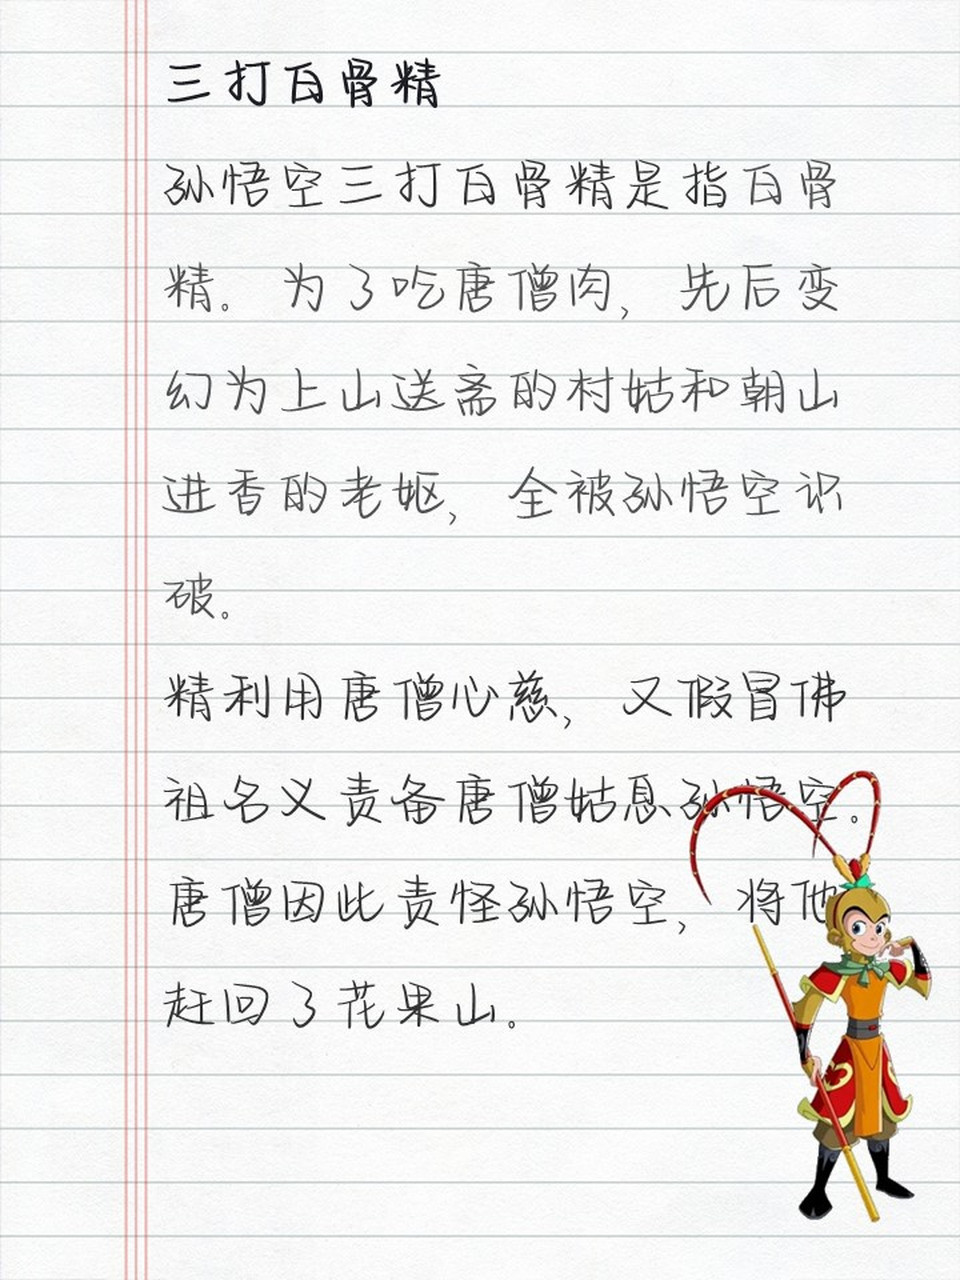 三打白骨精
孙悟空三打白骨精是指白骨
精。为了吃唐僧肉，先后变
幻为上山送斋的村姑和朝山
进香的老妪，全被孙悟空识
破。
精利用唐僧心慈，又假冒佛
祖名义责备唐僧姑息孙悟空。
唐僧因此责怪孙悟空，将他
赶回了花果山。